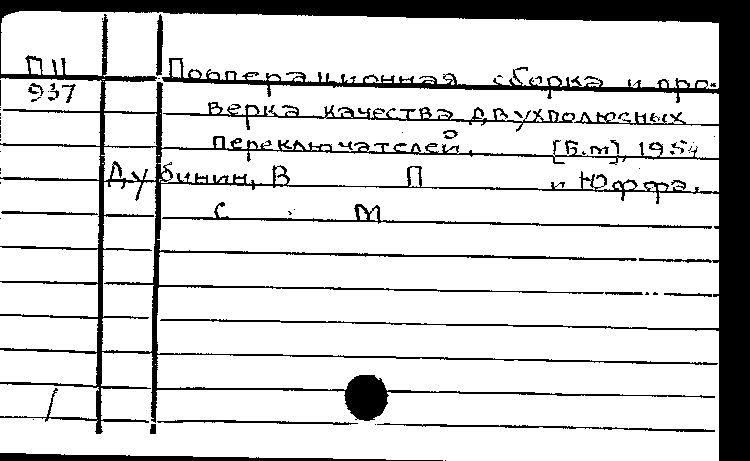 П11 Пооперационная сборка и про-
937 верка качества двухполюсных
переключателей. [Б.м], 1954
Дубинин, В П и Юффа,
С М
/